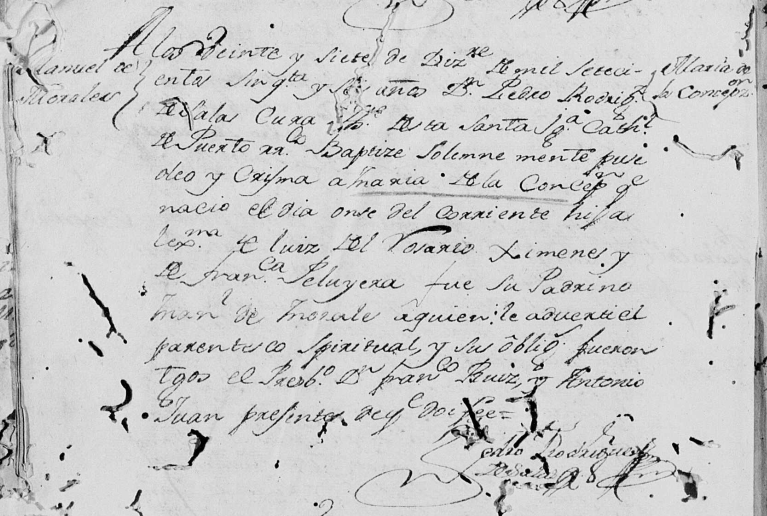 Manuel de
Morales
A los veinte y siete de Dizre de mil seteci-
entos singta y seis años Dn Pedro Rodrigz
de Salas Cura Tte de esta Santa Iga Cathl
de Puerto rrco Baptize Solemne mente puse
oleo y Crisma a maria de la Concepn qe
nacio el dia onse del corriente hija
lexma de luiz del Rosario Ximenes y
de franca Peluyera fue su Padrino
Manl de morales aquien le adverti el
parentesco Spiritual, y sus oblign fueron
tgos el Presbo Dn franco Ruiz, y Antonio
Juan presentes de qe doi fee=
Maria de la
Concepn
Pedro Rodriguez
de Salas